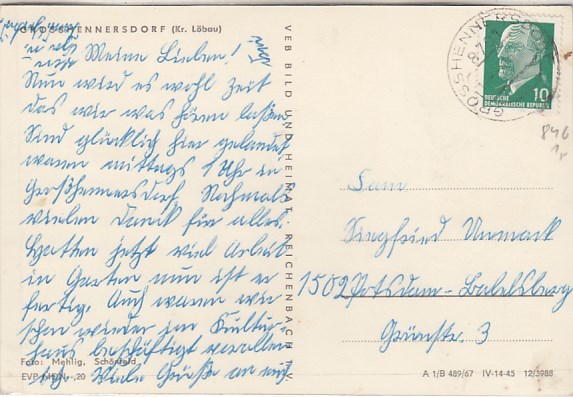 GROSSHENNERSDORF (Kr. Löbau)
Meine Lieben!
Nun wird es wohl Zeit
das wir was hören laßen
Sind glücklich hier gelandet
waren mittags 1 Uhr in
Großhennersdorf. Nochmals
vielen Danck für alles.
Hatten jetzt viel Arbeit
in Garten nun ist er
fertig. Auch waren wir
schon wieder im Kultur-
haus beschäftigt
Viele Grüße an
Foto: Mehlig, Schönfeld
EVP MDN -,20
VEB BILD UND HEIMAT REICHENBACH I. V.
GROSSHENNERSDORF
10
DEUTSCHE
DEMOKRATISCHE REPUBLIK
846
Fam
Siegfried Unmack
1502 Potsdam-Babelsberg
Grünstr. 3
A 1/B 489/67 IV-14-45 12/5988